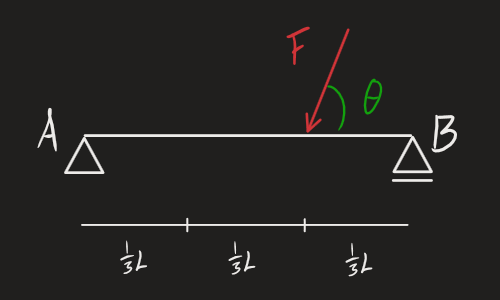 F
θ
A
B
1/3 L
1/3 L
1/3 L